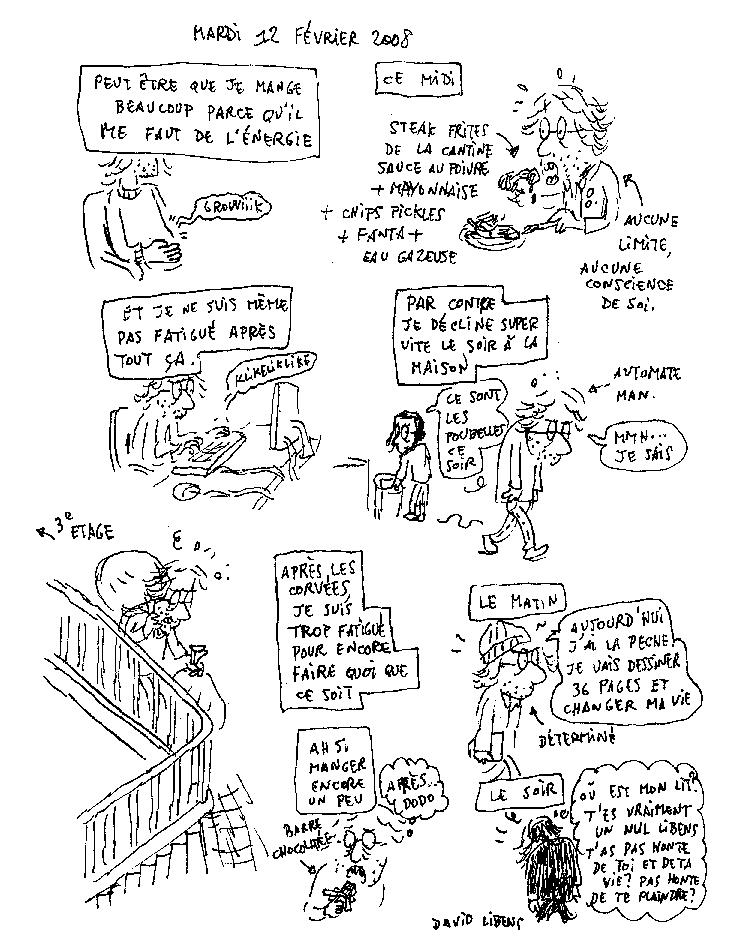 MARDI 12 FÉVRIER 2008
PEUT ÊTRE QUE JE MANGE
BEAUCOUP PARCE QU'IL
ME FAUT DE L'ÉNERGIE
GROUIIIK
CE MIDI
STEAK FRITES
DE LA CANTINE
SAUCE AU POIVRE
+ MAYONNAISE
+ CHIPS PICKLES
+ FANTA +
EAU GAZEUSE
AUCUNE
LIMITE,
AUCUNE
CONSCIENCE
DE SOI.
ET JE NE SUIS MÊME
PAS FATIGUÉ APRÈS
TOUT ÇA.
KLIKELIKLIKE
PAR CONTRE
JE DÉCLINE SUPER
VITE LE SOIR À LA
MAISON
CE SONT
LES
POUBELLES
CE
SOIR
AUTOMATE
MAN.
MMH...
JE SAIS
3e
ETAGE
APRÈS LES
CORVÉES,
JE SUIS
TROP FATIGUÉ
POUR ENCORE
FAIRE QUOI QUE
CE SOIT
AH SI
MANGER
ENCORE
UN PEU
APRÈS...
DODO
BARRE
CHOCOLATÉE
LE MATIN
AUJOURD'HUI
J'AI LA PECHE
JE VAIS DESSINER
36 PAGES ET
CHANGER MA VIE
DÉTERMINÉ
LE SOIR
OÙ EST MON LIT?
T'ES VRAIMENT
UN NUL LIBENS
T'AS PAS HONTE
DE TOI ET DE TA
VIE? PAS HONTE
DE TE PLAINDRE?
DAVID LIBENS